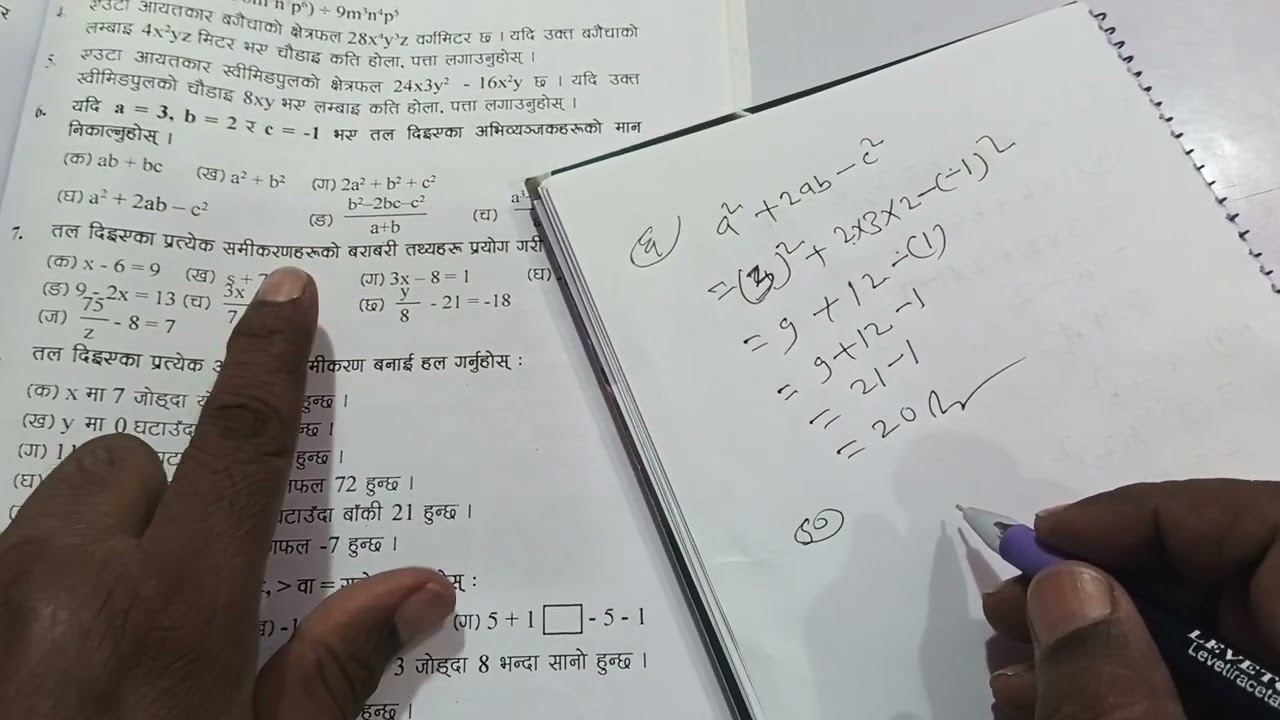 n p⁶) ÷ 9m³n⁴p⁵
4. एउटा आयतकार बगैचाको क्षेत्रफल 28x⁴y³z वर्गमिटर छ । यदि उक्त बगैचाको
लम्बाइ 4x²yz मिटर भए चौडाइ कति होला, पत्ता लगाउनुहोस् ।
5. एउटा आयतकार स्वीमिङपुलको क्षेत्रफल 24x3y² - 16x²y छ । यदि उक्त
स्वीमिङपुलको चौडाइ 8xy भए लम्बाइ कति होला, पत्ता लगाउनुहोस् ।
6. यदि a = 3, b = 2 र c = -1 भए तल दिइएका अभिव्यञ्जकहरूको मान
निकाल्नुहोस् ।
(क) ab + bc (ख) a² + b² (ग) 2a² + b² + c²
(घ) a² + 2ab – c² (ङ) b²–2bc–c²/a+b (च) a³
7. तल दिइएका प्रत्येक समीकरणहरूको बराबरी तथ्यहरू प्रयोग गरी
(क) x - 6 = 9 (ख) (ग) 3x – 8 = 1 (घ)
(ङ) 9 - 2x = 13 (च) 3x/7 (छ) y/8 - 21 = -18
(ज) 75/z - 8 = 7
तल दिइएका प्रत्येक मीकरण बनाई हल गर्नुहोस् :
(क) x मा 7 जोड्दा हुन्छ ।
(ख) y मा 0 घटाउँदा हुन्छ ।
(ग) हुन्छ ।
(घ) नफल 72 हुन्छ ।
घटाउँदा बाँकी 21 हुन्छ ।
नफल -7 हुन्छ ।
, > वा =
(ग) 5 + 1 □ - 5 - 1
3 जोड्दा 8 भन्दा सानो हुन्छ ।
हुन्छ ।
(घ) a² + 2ab – c²
= (3)² + 2×3×2 – (–1)²
= 9 + 12 – (1)
= 9 + 12 – 1
= 21 – 1
= 20
(ङ)
Levetiraceta